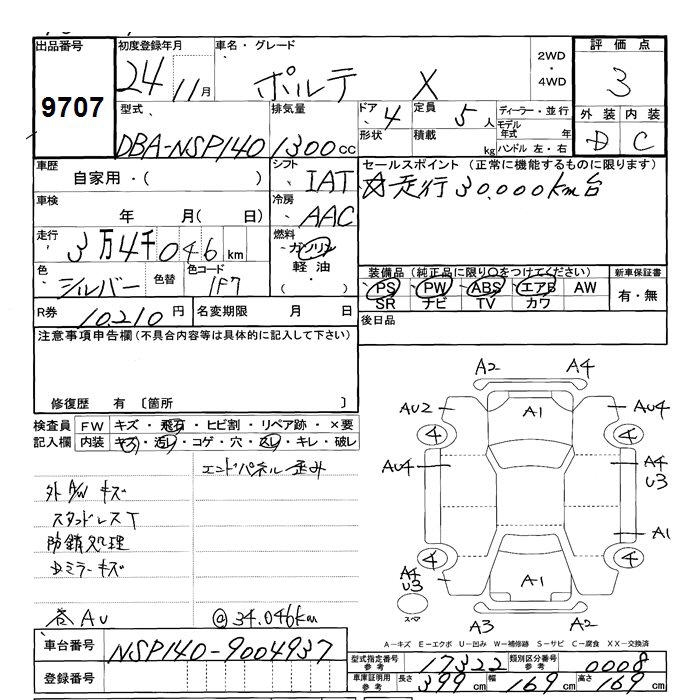 出品番号 初度登録年月 車名・グレード 2WD ・ 4WD 評価点
9707 24 11月 ポルテ X 3
型式 排気量 ドア 4 定員 5人 ディーラー・並行 外装 内装
DBA-NSP140 1300cc 形状 積載 kg モデル年式 年 ハンドル 左・右 D C
車歴 自家用・( ) シフト IAT セールスポイント (正常に機能するものに限ります)
☆走行30,000km台
車検 年 月( 日) 冷房 AAC
走行 3万4千046km 燃料 ガソリン
色 シルバー 色替 色コード 1F7 軽油 ( ・ )
装備品 (純正品に限り○をつけてください) 新車保証書
PS PW ABS エアB AW 有・無
SR ナビ TV カワ
R券 10,210円 名変期限 月 日 後日品
注意事項申告欄 (不具合内容等は具体的に記入して下さい)
修復歴 有 〔箇所 〕
検査員 FW キズ・飛石・ヒビ割・リペア跡・×要
記入欄 内装 キズ・汚レ・コゲ・穴・スレ・キレ・破レ
エンドパネル歪み
外AW キズ
スタッドレスT
防錆処理
Dミラーキズ
巻AU @34,046km
A2 A4
AU2 A1 AU4
4 4
AU4 A4
U3
A1
4 4
A4
U3 A1
スペア
A3 A2
A-キズ E-エクボ U-凹み W-補修跡 S-サビ C-腐食 XX-交換済
車台番号 NSP140-9004937
型式指定番号 参考 17322 類別区分番号 参考 0008
登録番号
車庫証明用 参考 長さ 399cm 幅 169cm 高さ 169cm